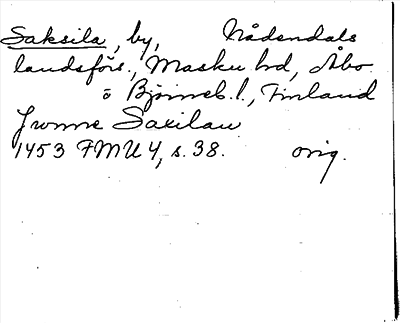 Saksila, by, Nådendals
landsförs., Masku hd, Åbo
o Björneb. l., Finland
Jromne Saxilau
1453 FMU 4, s. 38. orig.